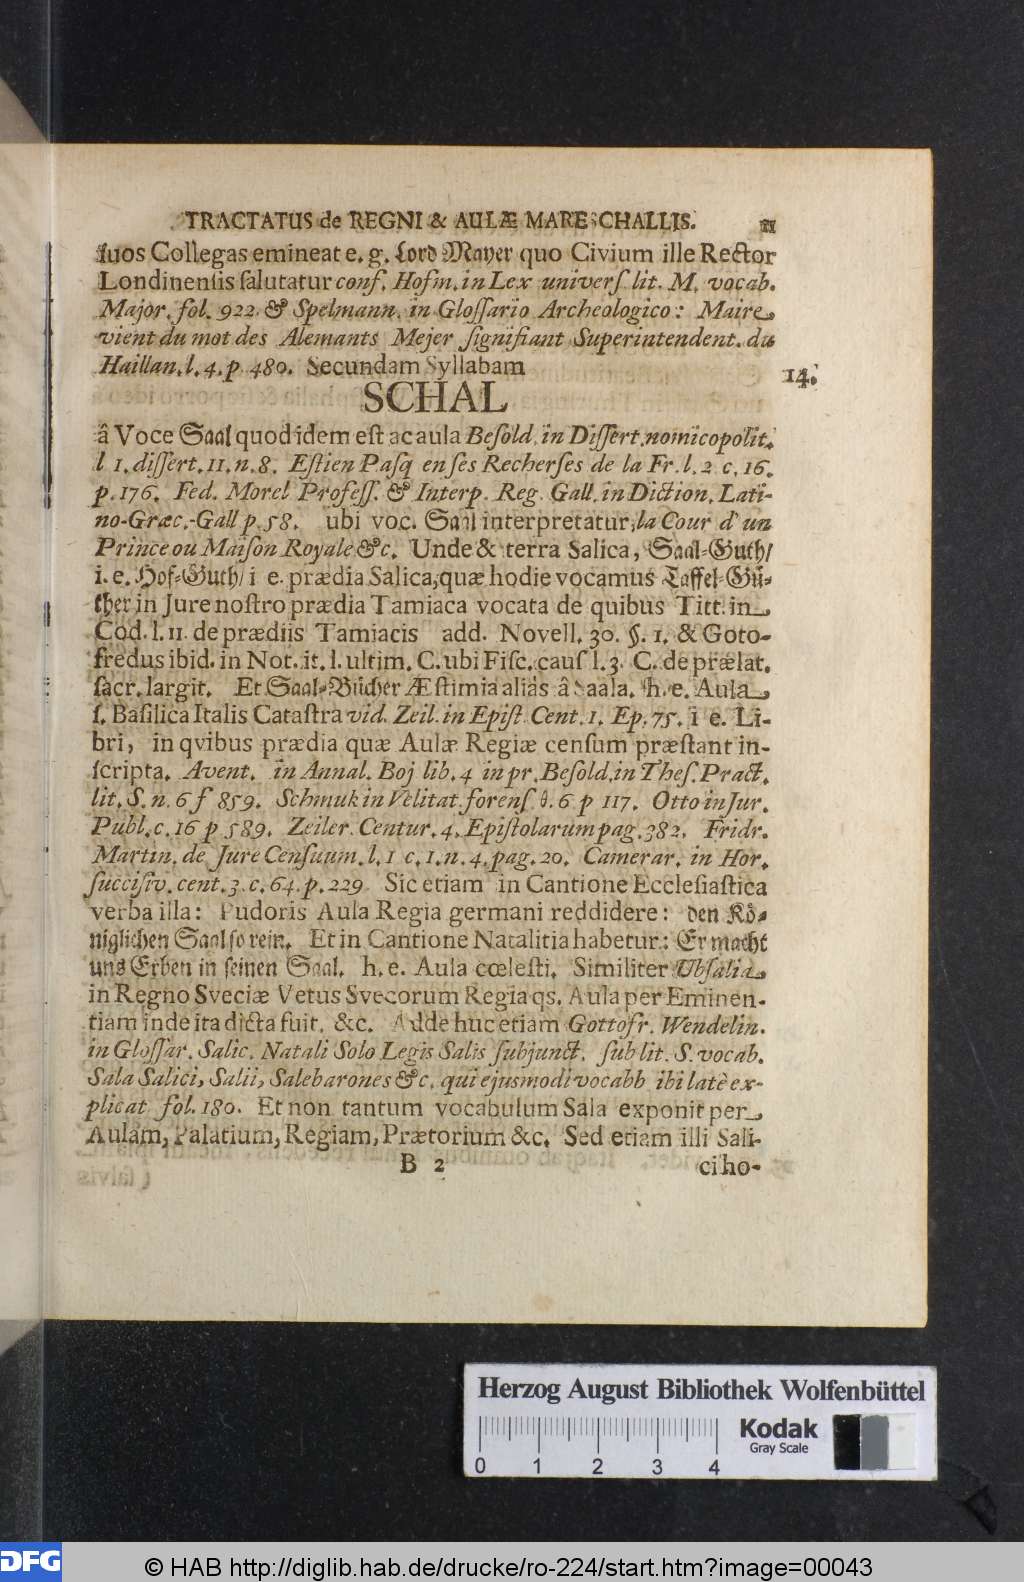 TRACTATUS de REGNI & AULÆ MARESCHALLIS. 11
ſuos Collegas emineat e. g. Lord Mayer quo Civium ille Rector
Londinenſis ſalutatur conf. Hofm. in Lex univerſ lit. M. vocab.
Major. fol. 922. & Spelmann. in Gloſſario Archeologico: Maire
vient du mot des Alemants Mejer ſignifiant Superintendent. du
Haillan. l. 4. p. 480. Secundam Syllabam
14.
SCHAL
â Voce Saal quod idem eſt ac aula Beſold. in Diſſert. nomicopolit.
l 1. diſſert. 11. n. 8. Eſtien Paſq en ſes Recherſes de la Fr. l. 2 c. 16.
p. 176. Fed. Morel Profeſſ. & Interp. Reg. Gall. in Diction. Lati-
no-Græc.-Gall p. 58. ubi voc. Saal interpretatur, la Cour d' un
Prince ou Maiſon Royale &c. Unde & terra Salica, Saal-Guth/
i. e. Hof-Guth/ i e. prædia Salica, quæ hodie vocamus Taffel-Gü-
ther in Jure noſtro prædia Tamiaca vocata de quibus Titt. in
Cod. l. 11. de prædiis Tamiacis add. Novell. 30. §. 1. & Goto-
fredus ibid. in Not. it. l. ultim. C. ubi Fiſc. cauſ l. 3. C. de prælat.
ſacr. largit. Et Saal-Bücher Æſtimia aliàs â Saala. h. e. Aula
ſ. Baſilica Italis Cataſtra vid. Zeil. in Epiſt. Cent. 1. Ep. 75. i e. Li-
bri, in qvibus prædia quæ Aulæ Regiæ cenſum præſtant in-
ſcripta. Avent. in Annal. Boj lib. 4 in pr. Beſold. in Theſ. Pract.
lit. S. n. 6 f 859. Schmuk in Velitat. forenſ. θ. 6 p 117. Otto in Jur.
Publ. c. 16 p 589. Zeiler. Centur. 4. Epiſtolarum pag. 382. Fridr.
Martin. de Jure Cenſuum. l. 1 c. 1. n. 4. pag. 20. Camerar. in Hor.
ſucciſiv. cent. 3. c. 64. p. 229 Sic etiam in Cantione Eccleſiaſtica
verba illa: Pudoris Aula Regia germani reddidere: den Kö-
niglichen Saal ſo rein. Et in Cantione Natalitia habetur: Er macht
uns Erben in ſeinen Saal. h. e. Aula cœleſti. Similiter Ubſalia
in Regno Sveciæ Vetus Svecorum Regia qs. Aula per Eminen-
tiam inde ita dicta fuit. &c. Adde huc etiam Gottofr. Wendelin.
in Gloſſar. Salic. Natali Solo Legis Salis ſubjunct. ſub lit. S. vocab.
Sala Salici, Salii, Salebarones &c. qui ejusmodi vocabb ibi latè ex-
plicat fol. 180. Et non tantum vocabulum Sala exponit per
Aulam, Palatium, Regiam, Prætorium &c. Sed etiam illi Sali-
B 2 ci ho-
Herzog August Bibliothek Wolfenbüttel
0 1 2 3 4
Kodak
Gray Scale
DFG © HAB http://diglib.hab.de/drucke/ro-224/start.htm?image=00043